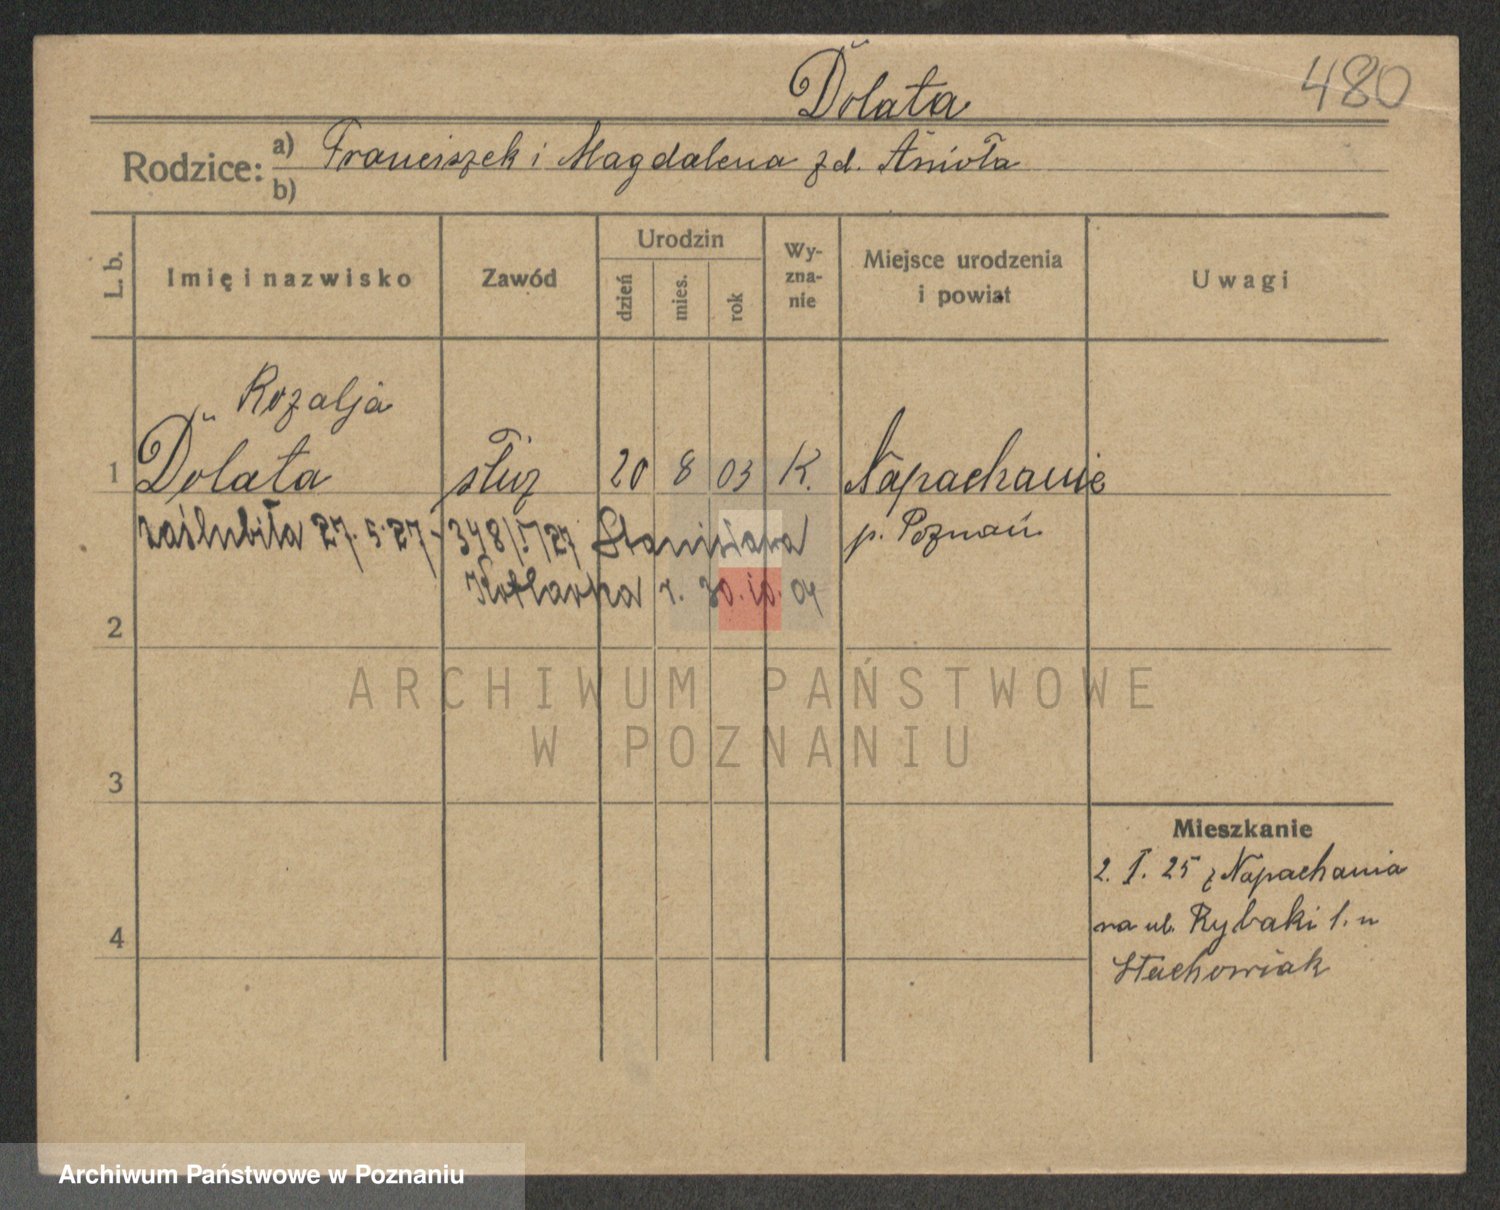 Dolata 480
Rodzice: a) Franciszek i Magdalena z d. Anioła
b)
L. b. Imię i nazwisko Zawód Urodzin dzień mies. rok Wyzna-nie Miejsce urodzenia i powiat Uwagi
Rozalja
1 Dolata służ 20 8 03 K. Napachanie
zaślubiła 27.5.27 - 348/I/27 Stanisława p. Poznań
r. 30.10.04
2
ARCHIWUM PAŃSTWOWE
W POZNANIU
3
Mieszkanie
2. I. 25 z Napachania
na ul. Rybaki
4
Stachowiak
Archiwum Państwowe w Poznaniu